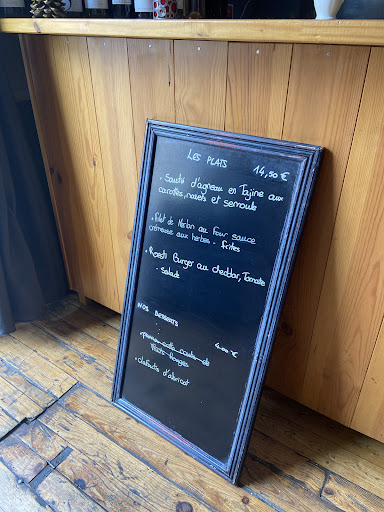 LES PLATS 14,50 €
• Sauté d'agneau en Tajine aux
carottes, navets et semoule
• Filet de Merlan au four sauce
crémeuse aux herbes - frites
• Roesti Burger au cheddar, Tomate
- Salade
NOS DESSERTS :
4.00 €
• panna cotta coulis de
fruits rouges
• clafoutis d'abricot